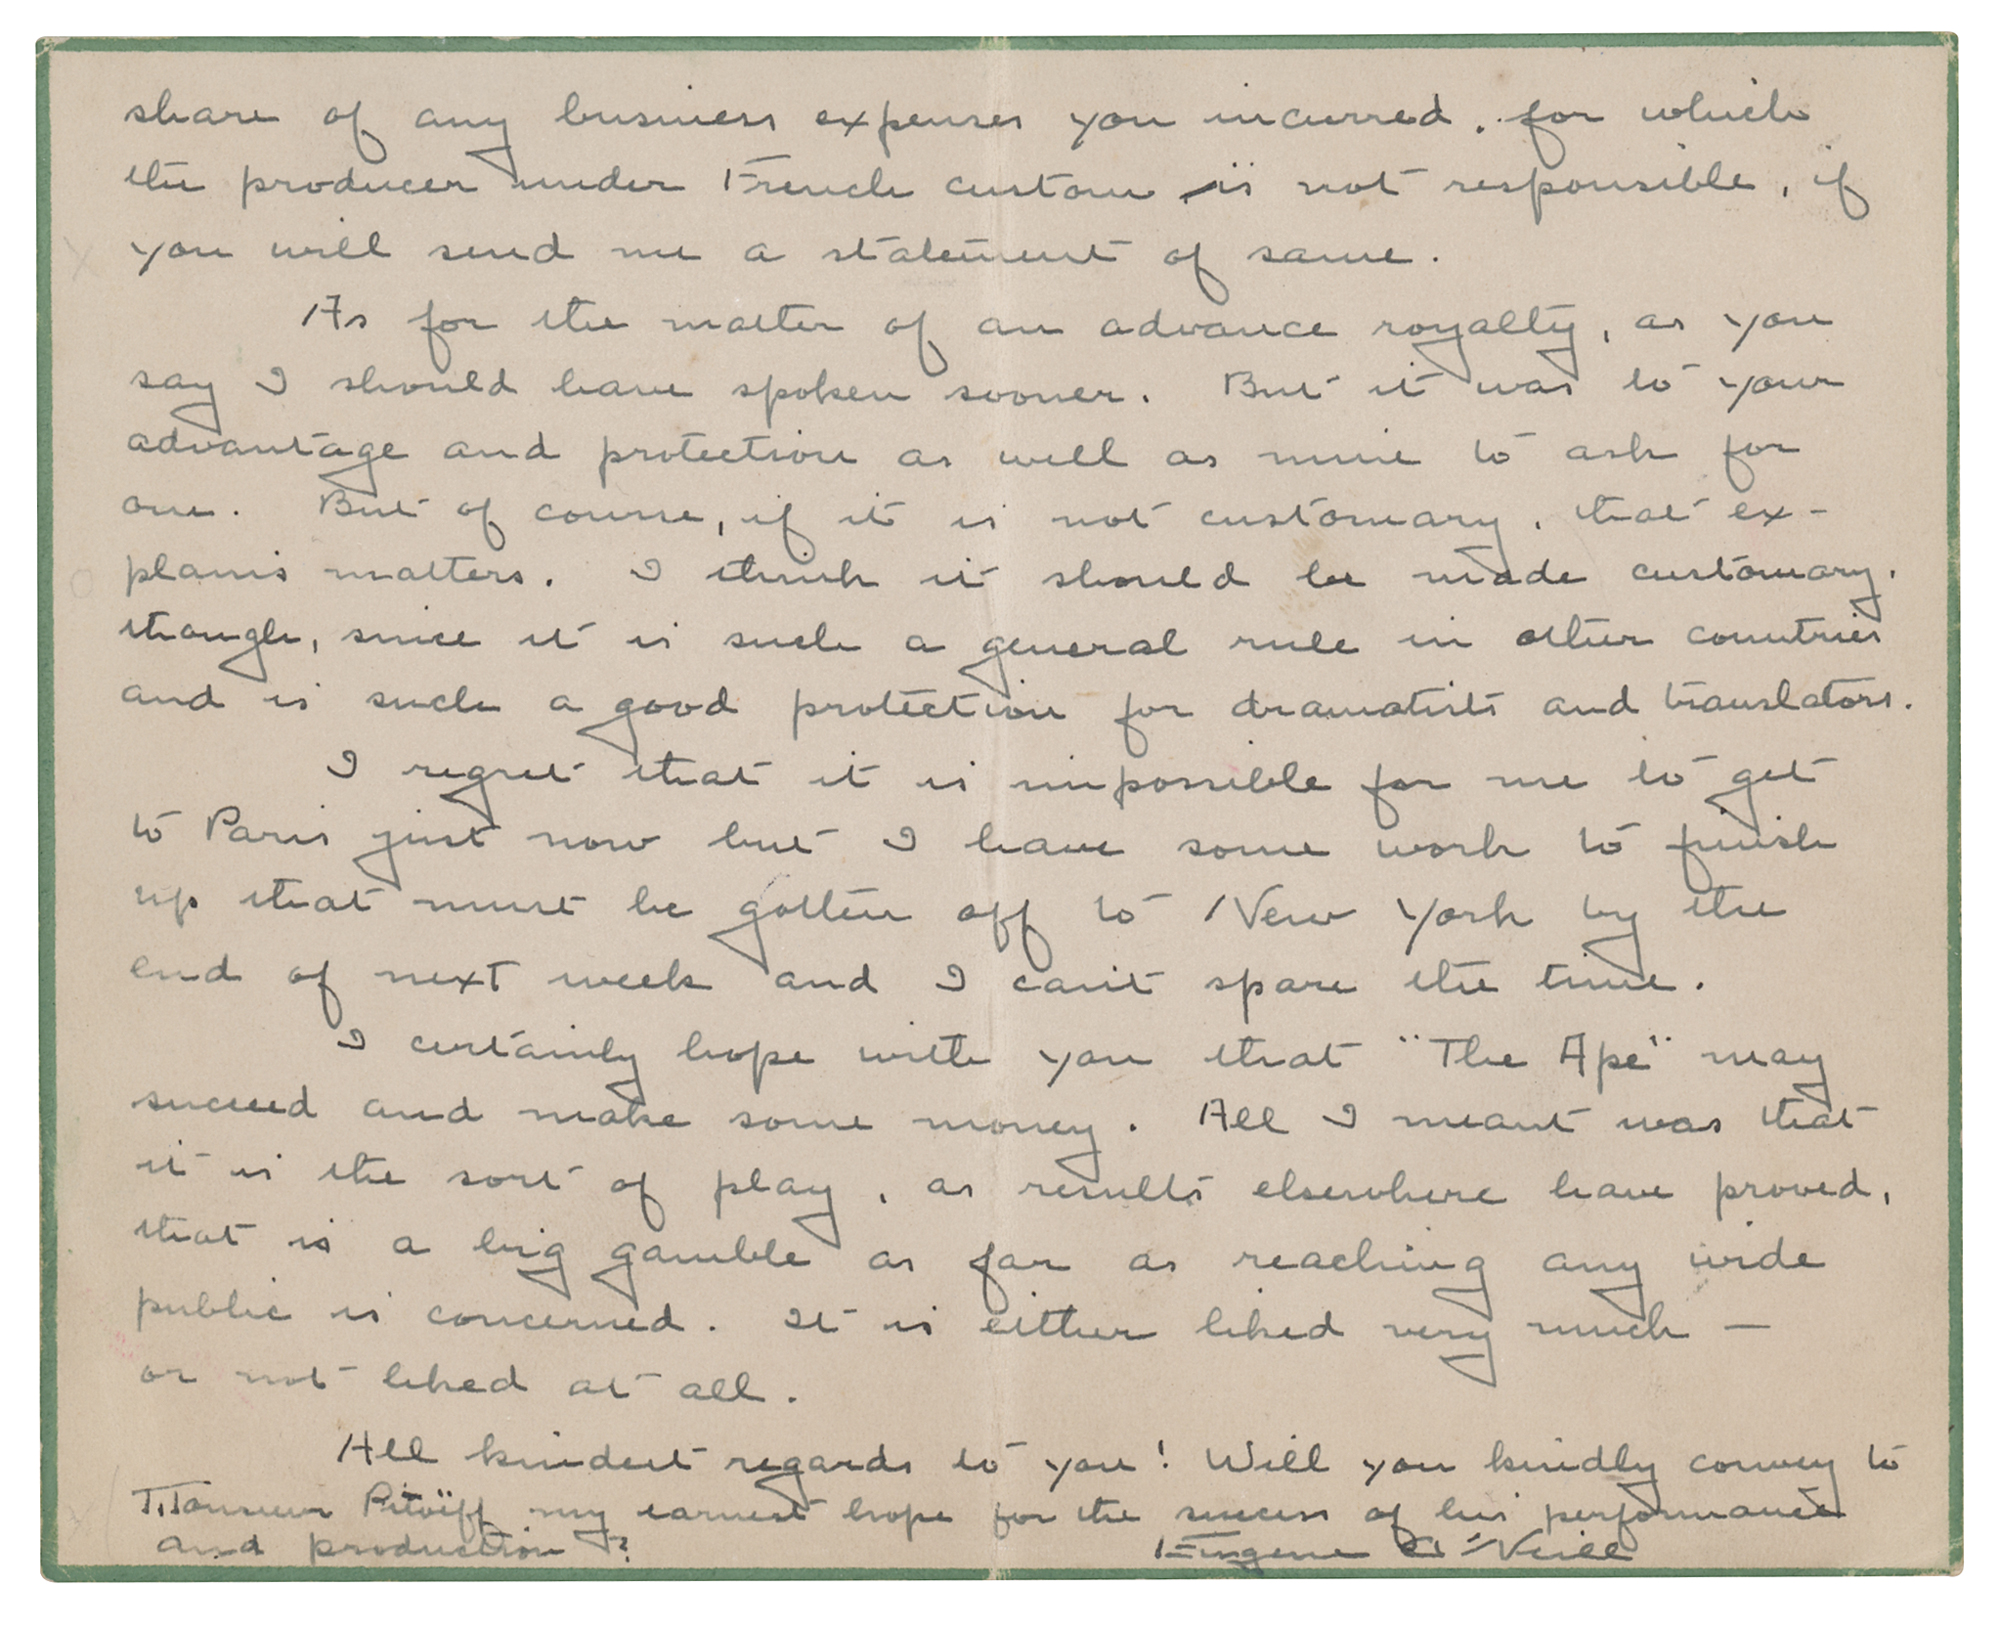 share of any business expenses you incurred, for which
the producer under French custom is not responsible, if
you will send me a statement of same.
As for the matter of an advance royalty, as you
say I should have spoken sooner. But it was to your
advantage and protection as well as mine to ask for
one. But of course, if it is not customary, that ex-
plains matters. I think it should be made customary,
though, since it is such a general rule in other countries
and is such a good protection for dramatists and translators.
I regret that it is impossible for me to get
to Paris just now but I have some work to finish
up that must be gotten off to New York by the
end of next week and I can't spare the time.
I certainly hope with you that "The Ape" may
succeed and make some money. All I meant was that
it is the sort of play, as results elsewhere have proved,
that is a big gamble as far as reaching any wide
public is concerned. It is either liked very much —
or not liked at all.
All kindest regards to you! Will you kindly convey to
Monsieur Pitoëff my earnest hope for the success of his performance
and production?
Eugene O'Neill